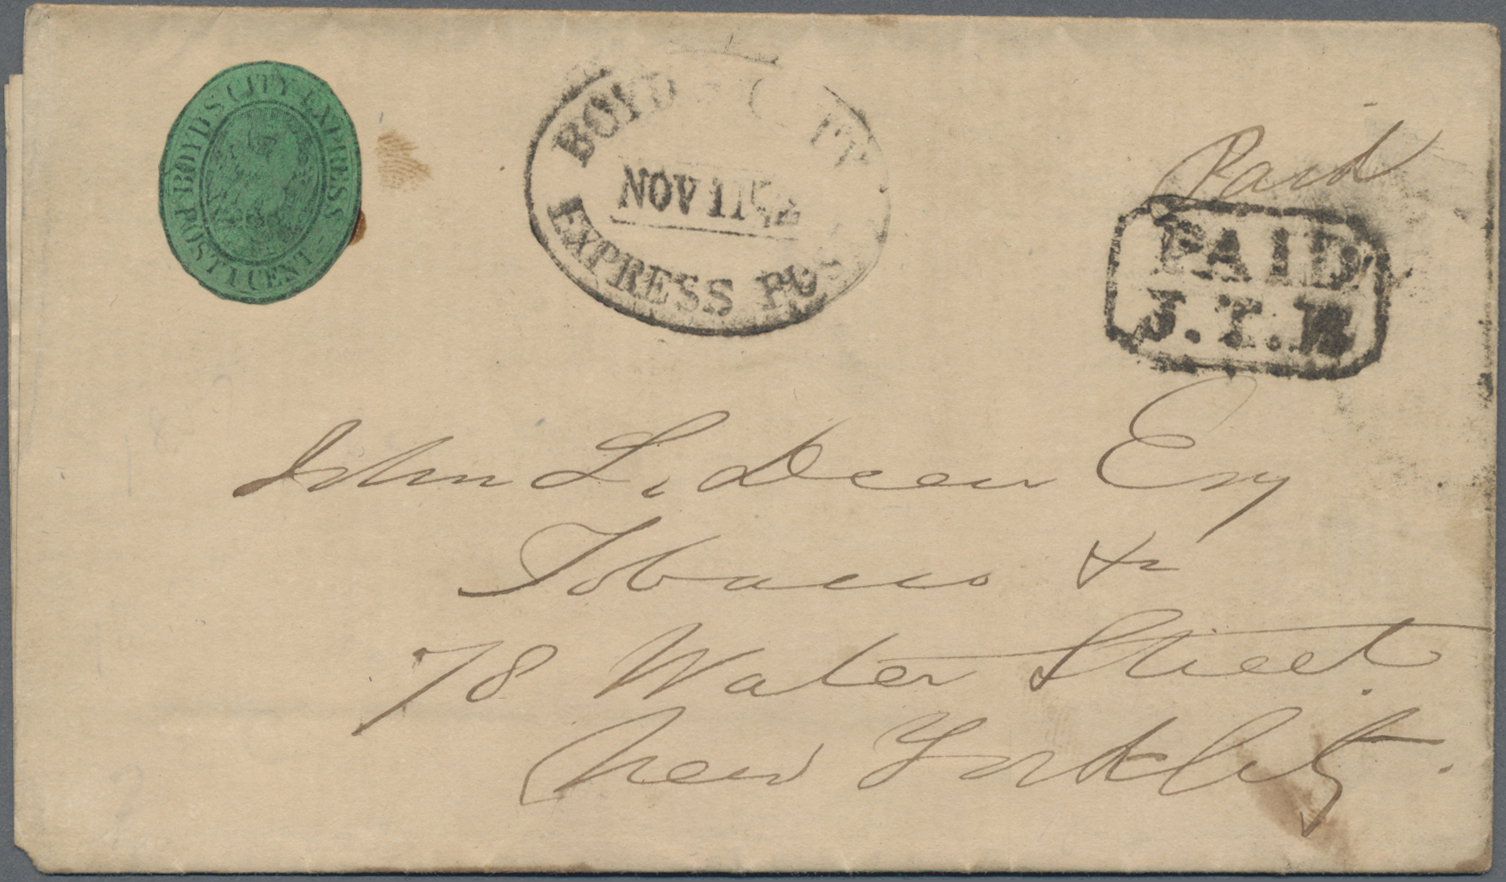 BOYD'S CITY EXPRESS
POST 1 CENT
BOYD'S CITY
NOV 11
EXPRESS POST
Paid
PAID
J.T.B.
John L. Deen Esq
Tobacco &c
78 Water Street.
New York City.